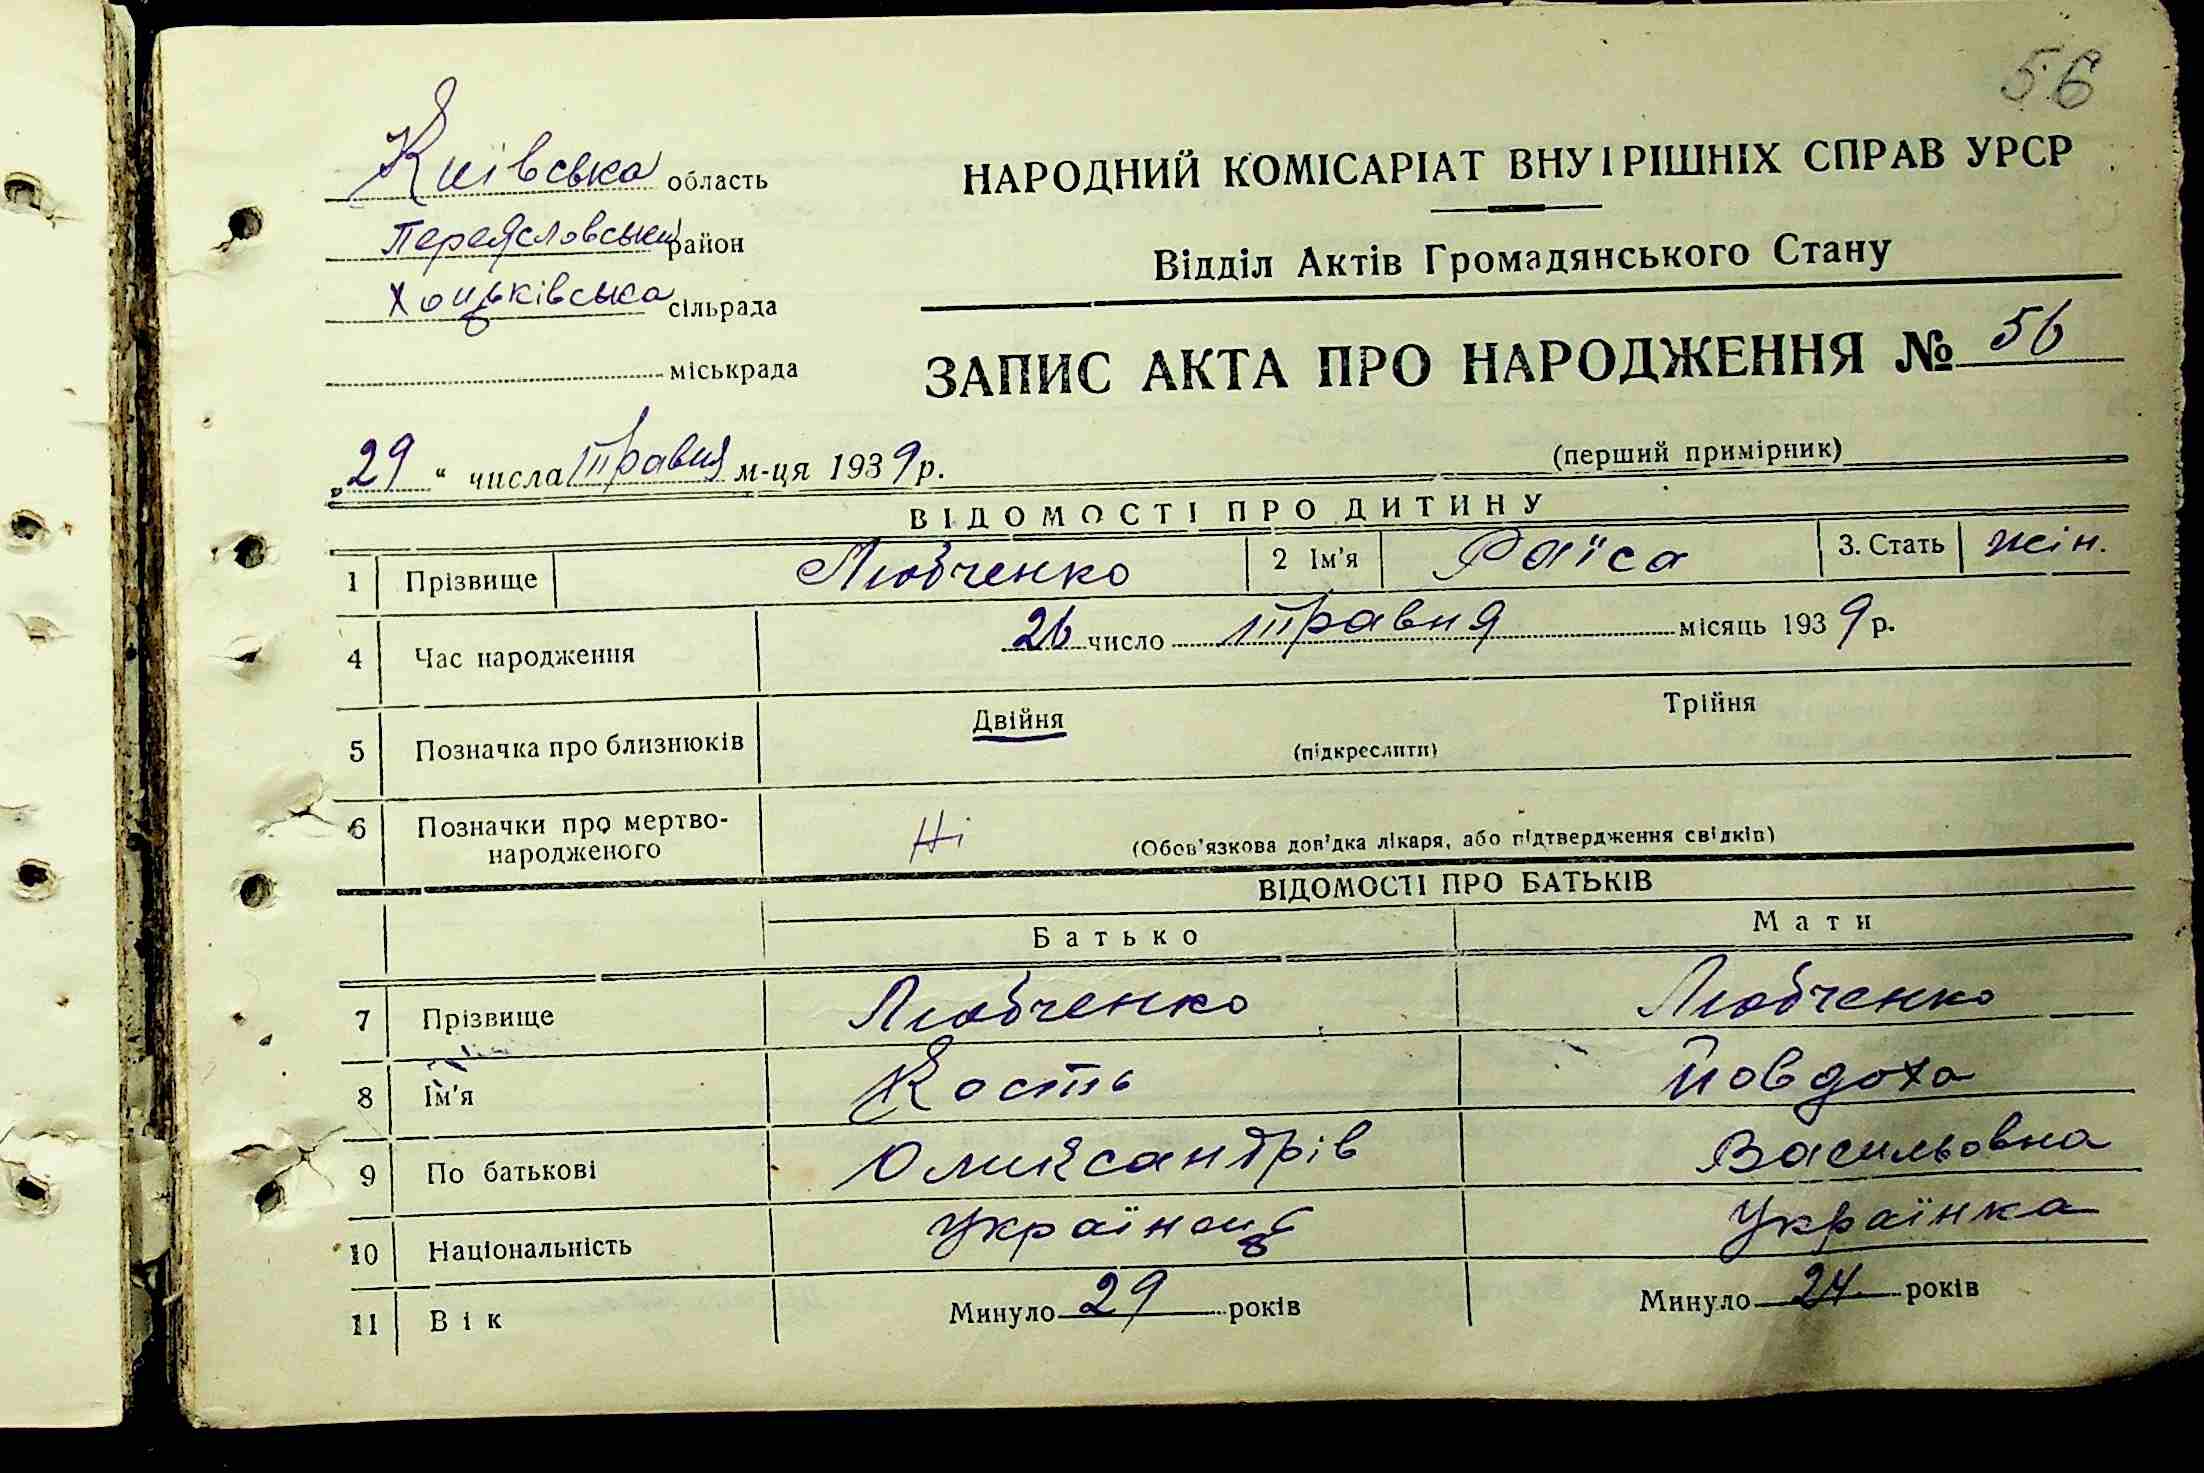 56
Київська область
Переясловський район
Хоцьківська сільрада
міськрада
НАРОДНИЙ КОМІСАРІАТ ВНУТРІШНІХ СПРАВ УРСР
Відділ Актів Громадянського Стану
ЗАПИС АКТА ПРО НАРОДЖЕННЯ № 56
„29“ числа травня м-ця 1939 р.
(перший примірник)
ВІДОМОСТІ ПРО ДИТИНУ
1 Прізвище Любченко 2 Ім'я Раїса 3. Стать жін.
4 Час народження 26 число травня місяць 1939 р.
5 Позначка про близнюків Двійня (підкреслити) Трійня
6 Позначки про мертво-
народженого Ні (Обов'язкова дов'дка лікаря, або підтвердження свідків)
ВІДОМОСТІ ПРО БАТЬКІВ
Батько Мати
7 Прізвище Любченко Любченко
8 Ім'я Кость Йовдоха
9 По батькові Олександрів Васильовна
10 Національність Українець Українка
11 Вік Минуло 29 років Минуло 24 років